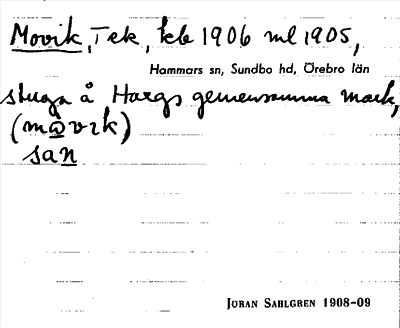 Movik, Tek, kb 1906 ml 1905,
Hammars sn, Sundbo hd, Örebro län
stuga å Hargs gemensamma mark,
(mωvik)
san
JÖRAN SAHLGREN 1908-09